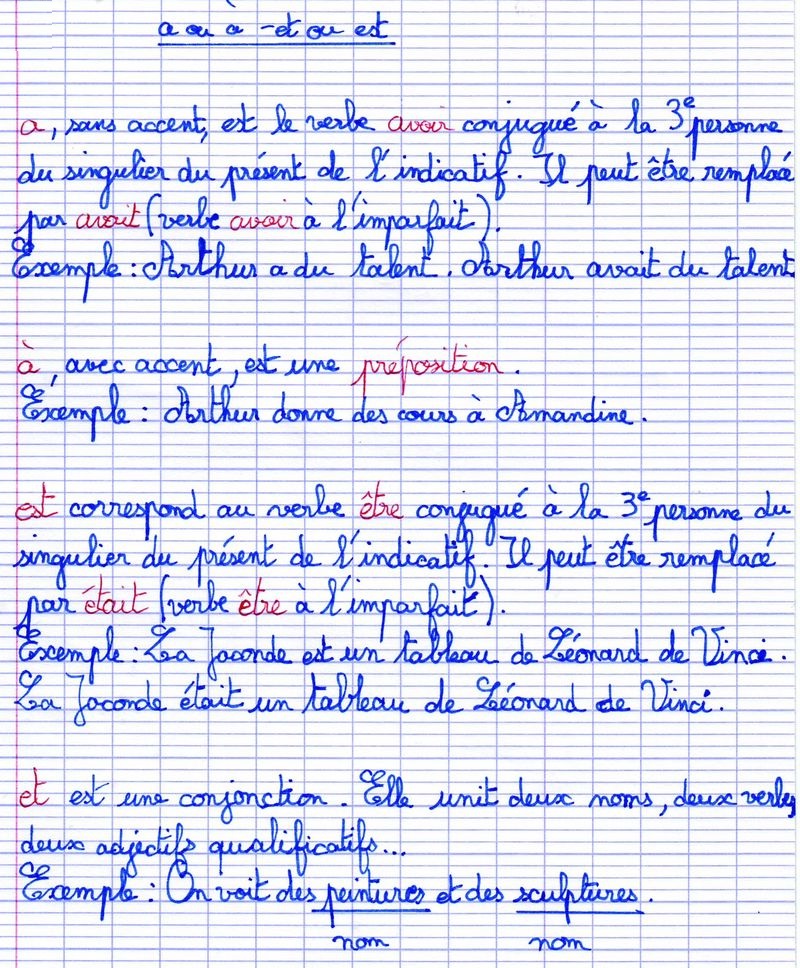 a ou à - et ou est
a, sans accent, est le verbe avoir conjugué à la 3e personne
du singulier du présent de l'indicatif. Il peut être remplacé
par avait (verbe avoir à l'imparfait).
Exemple : Arthur a du talent. Arthur avait du talent
à, avec accent, est une préposition.
Exemple : Arthur donne des cours à Amandine.
est correspond au verbe être conjugué à la 3e personne du
singulier du présent de l'indicatif. Il peut être remplacé
par était (verbe être à l'imparfait).
Exemple : La Joconde est un tableau de Léonard de Vinci.
La Joconde était un tableau de Léonard de Vinci.
et est une conjonction. Elle unit deux noms, deux verbes,
deux adjectifs qualificatifs...
Exemple : On voit des peintures et des sculptures.
nom nom